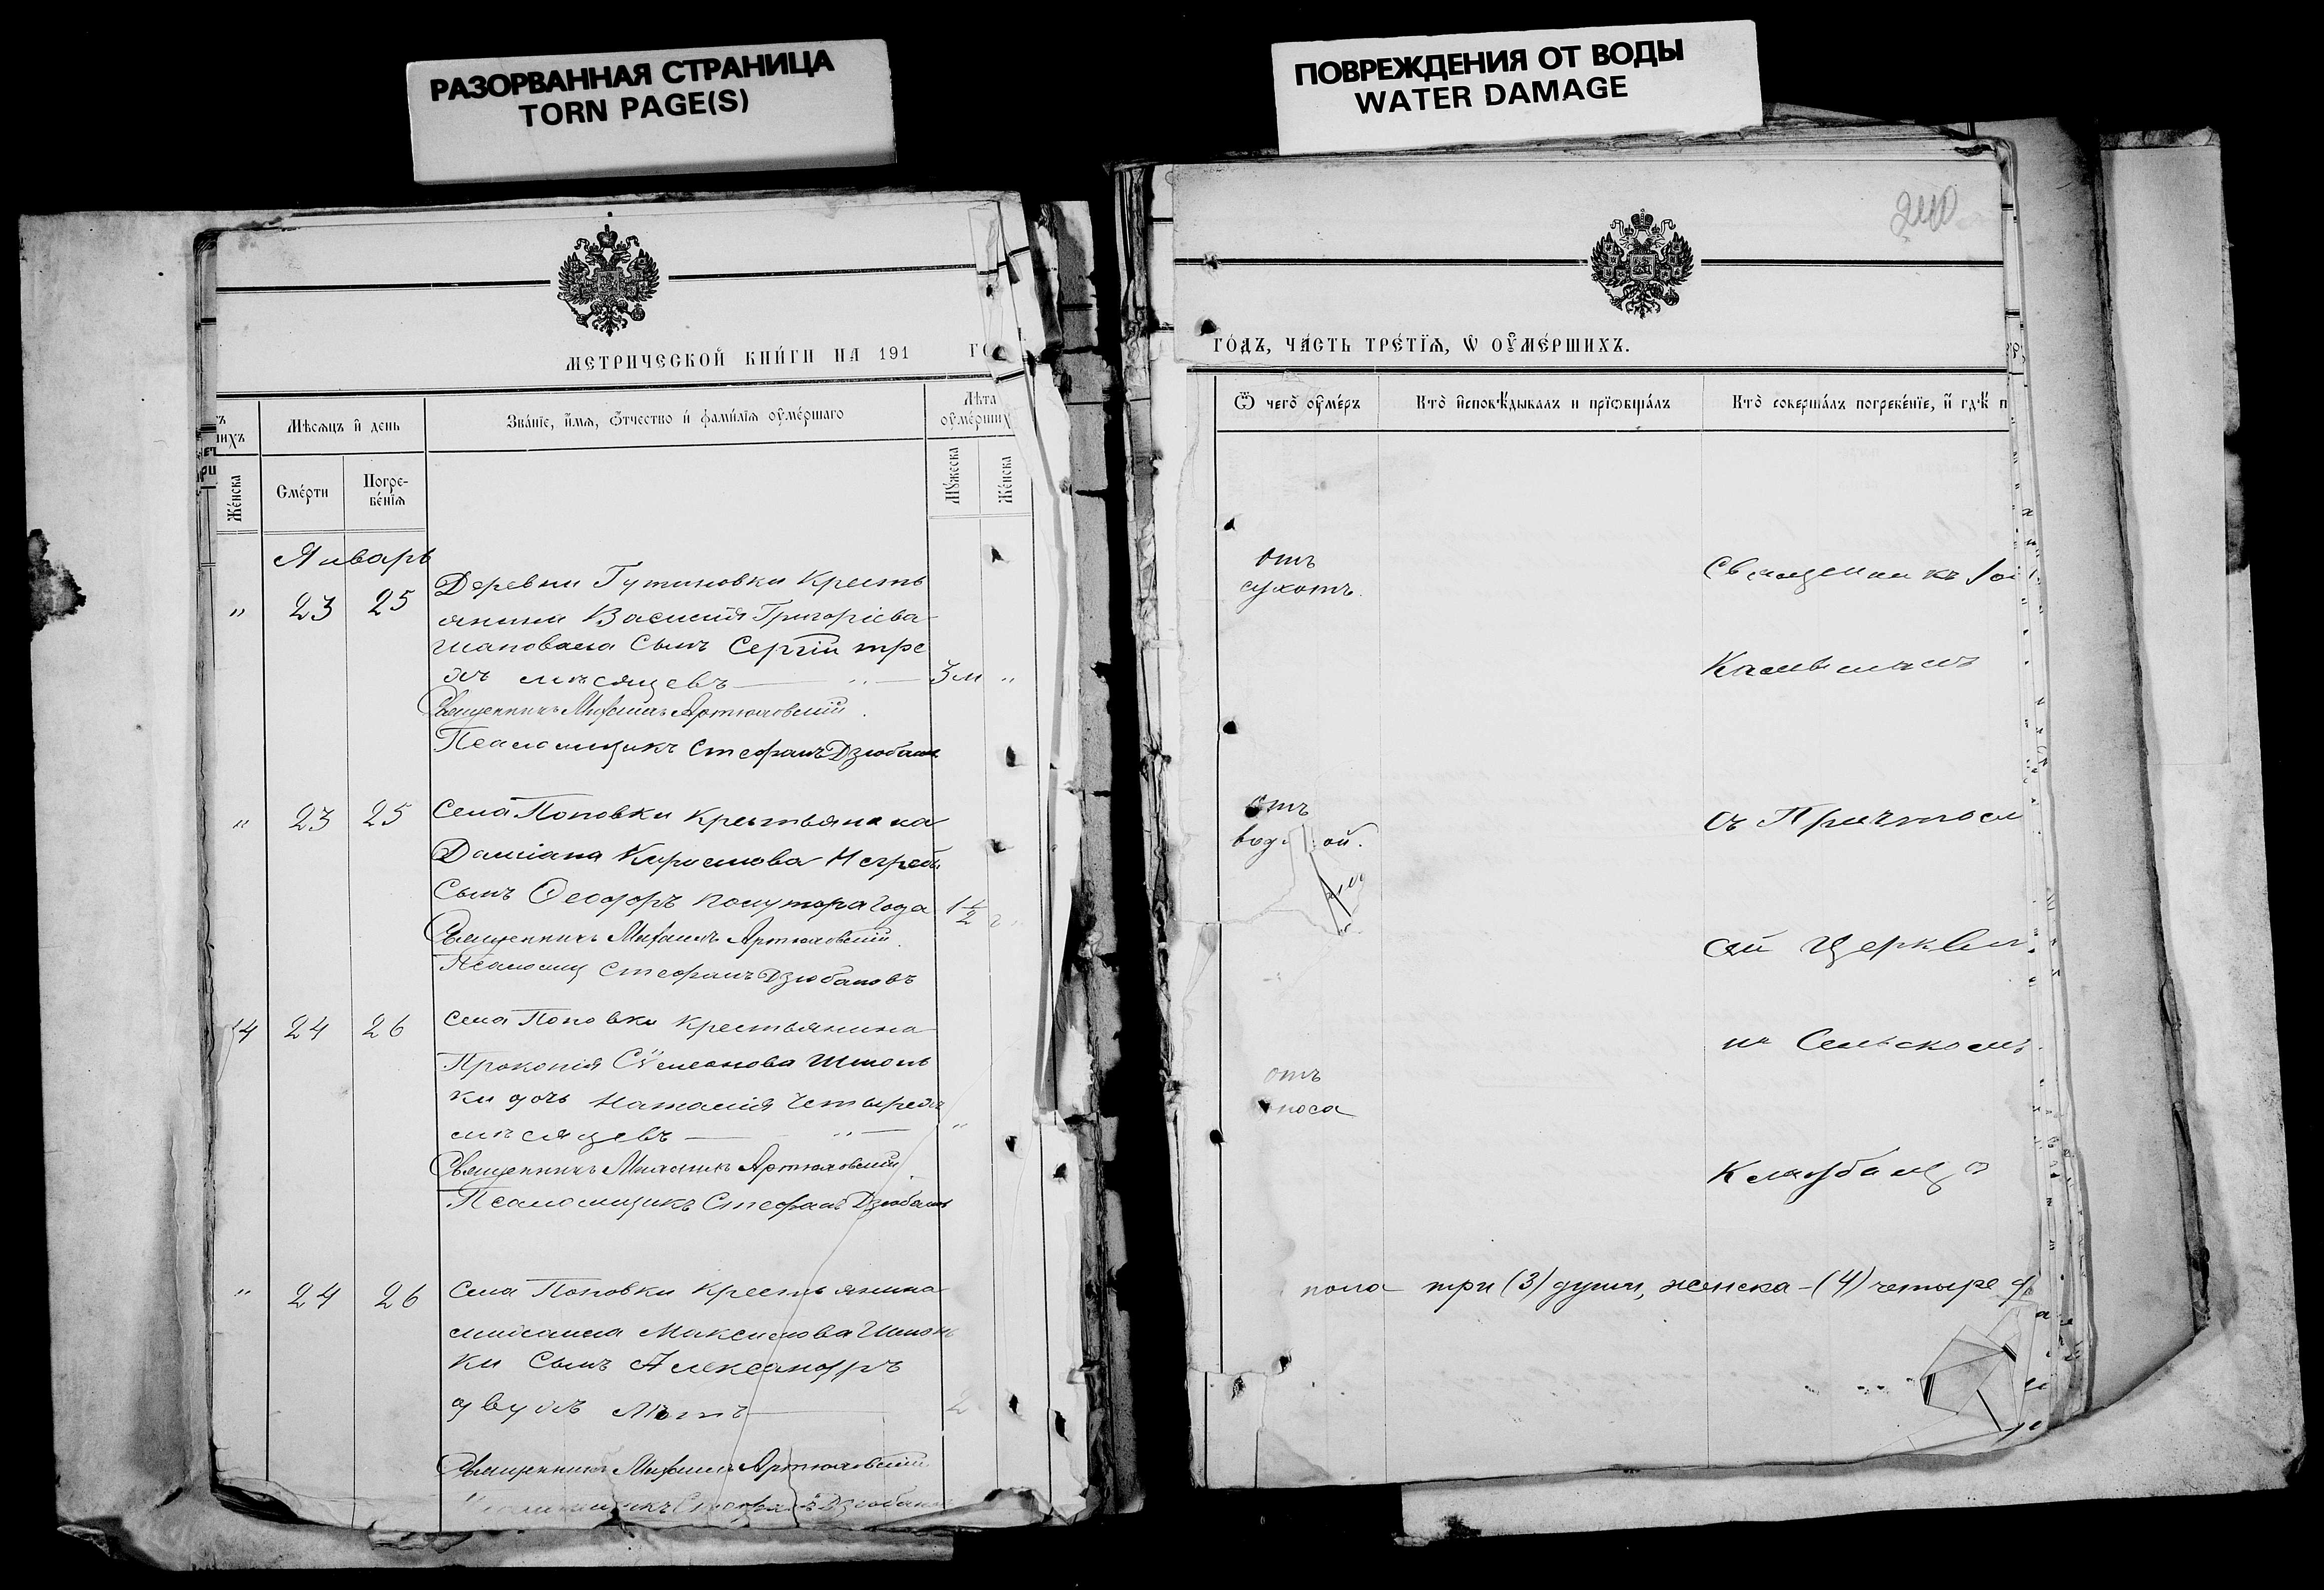 РАЗОРВАННАЯ СТРАНИЦА
TORN PAGE(S)
ПОВРЕЖДЕНИЯ ОТ ВОДЫ
WATER DAMAGE
МЕТРИЧЕСКОЙ КНИГИ НА 191
Мѣсяцъ и день
Званіе, имя, отчество и фамилія оумершаго
Лѣта
оумерших
Женска
Смерти
Погре-
бенія
Мужеска
Женска
Январь
" 23 25
Деревни Гутиновки Кресть
янина Василія Григоріева
Шаповала Сынъ Сергій тре
хъ мѣсяцевъ 3 м "
Священникъ Михаилъ
Псаломщикъ Стефанъ Дзюбанов
" 23 25 Села Поповки Крестьянина
Даміана Кирилова
Сынъ Ѳеодоръ полутора года 1 1/2 г
Священникъ Михаилъ
Псаломщ Стефанъ Дзюбановъ
14 24 26 Села Поповки Крестьянина
Прокопія Сѵмеонова Шпонь
ки дочь Наталія Четырехъ
мѣсяцевъ "
Священникъ Михаилъ
Псаломщикъ Стефанъ Дзюбанов
" 24 26 Села Поповки Крестьянина
Михаила Максимова Шпонь
ки Сынъ Александръ
двухъ лѣтъ 2
Священникъ Михаилъ
Стефанъ
240
ГОДЪ, ЧАСТЬ ТРЕТІЯ, Ѡ ОУМЕРШИХЪ.
Ѿ чего оумеръ
Кто исповѣдывалъ и пріобщалъ
Кто совершалъ погребеніе, и гдѣ п
отъ
сухотъ.
Священникъ
отъ
съ Причтом
ой.
Церкви
на Сельскомъ
отъ
носа
Кладбищѣ
пола три (3) души, женска - (4) четыре д